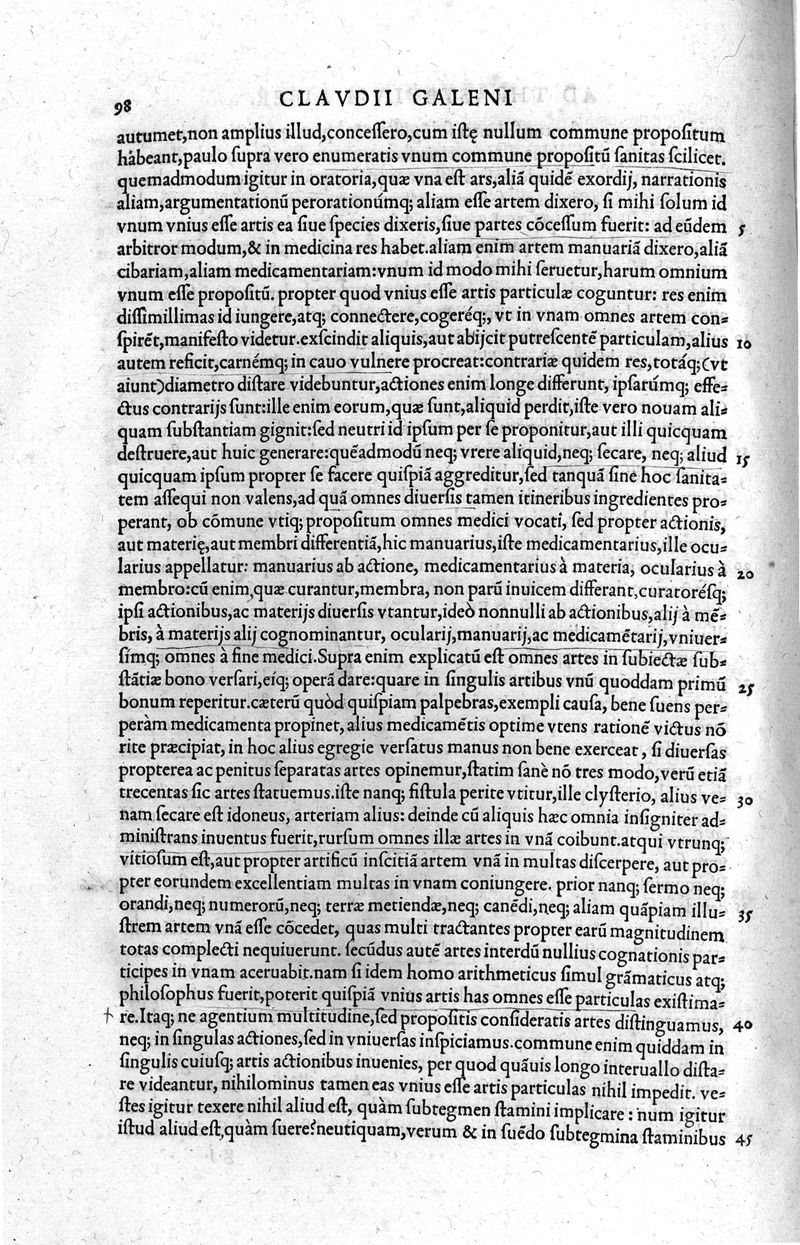 98
CLAVDII GALENI
autumet,non amplius illud,conceſſero,cum iſtę nullum commune propoſitum
habeant,paulo ſupra vero enumeratis vnum commune propoſitū ſanitas ſcilicet.
quemadmodum igitur in oratoria,quæ vna eſt ars,aliā quidē exordij, narrationis
aliam,argumentationū perorationúmq; aliam eſſe artem dixero, ſi mihi ſolum id
vnum vnius eſſe artis ea ſiue ſpecies dixeris,ſiue partes cōceſſum fuerit: ad eūdem 5
arbitror modum,& in medicina res habet.aliam enim artem manuariā dixero,aliā
cibariam,aliam medicamentariam:vnum id modo mihi ſeruetur,harum omnium
vnum eſſe propoſitū. propter quod vnius eſſe artis particulæ coguntur: res enim
diſſimillimas id iungere,atq; connectere,cogeréq;, vt in vnam omnes artem con=
ſpirēt,manifeſto videtur.exſcindit aliquis,aut abijcit putreſcentē particulam,alius 10
autem reficit,carnémq; in cauo vulnere procreat:contrariæ quidem res,totáq;(vt
aiunt)diametro diſtare videbuntur,actiones enim longe differunt, ipſarúmq; effe=
ctus contrarijs ſunt:ille enim eorum,quæ ſunt,aliquid perdit,iſte vero nouam ali=
quam ſubſtantiam gignit:ſed neutri id ipſum per ſe proponitur,aut illi quicquam
deſtruere,aut huic generare:quēadmodū neq; vrere aliquid,neq; ſecare, neq; aliud 15
quicquam ipſum propter ſe facere quiſpiā aggreditur,ſed tanquā ſine hoc ſanita=
tem aſſequi non valens,ad quā omnes diuerſis tamen itineribus ingredientes pro=
perant, ob cōmune vtiq; propoſitum omnes medici vocati, ſed propter actionis,
aut materię,aut membri differentiā,hic manuarius,iſte medicamentarius,ille ocu=
larius appellatur: manuarius ab actione, medicamentarius à materia, ocularius à 20
membro:cū enim,quæ curantur,membra, non parū inuicem differant,curatoréſq;
ipſi actionibus,ac materijs diuerſis vtantur,ideò nonnulli ab actionibus,alij à mē=
bris, à materijs alij cognominantur, ocularij,manuarij,ac medicamētarij,vniuer=
ſímq; omnes à fine medici.Supra enim explicatū eſt omnes artes in ſubiectæ ſub=
ſtātiæ bono verſari,eíq; operā dare:quare in ſingulis artibus vnū quoddam primū 25
bonum reperitur.cæterū quòd quiſpiam palpebras,exempli cauſa, bene ſuens per=
peràm medicamenta propinet, alius medicamētis optime vtens rationē victus nō
rite præcipiat, in hoc alius egregie verſatus manus non bene exerceat, ſi diuerſas
propterea ac penitus ſeparatas artes opinemur,ſtatim ſanè nō tres modo,verū etiā
trecentas ſic artes ſtatuemus.iſte nanq; fiſtula perite vtitur,ille clyſterio, alius ve= 30
nam ſecare eſt idoneus, arteriam alius: deinde cū aliquis hæc omnia inſigniter ad=
miniſtrans inuentus fuerit,rurſum omnes illæ artes in vnā coibunt.atqui vtrunq;
vitioſum eſt,aut propter artificū inſcitiā artem vnā in multas diſcerpere, aut pro=
pter eorundem excellentiam multas in vnam coniungere. prior nanq; ſermo neq;
orandi,neq; numerorū,neq; terræ metiendæ,neq; canēdi,neq; aliam quāpiam illu= 35
ſtrem artem vnā eſſe cōcedet, quas multi tractantes propter earū magnitudinem
totas complecti nequiuerunt. ſecūdus autē artes interdū nullius cognationis par=
ticipes in vnam aceruabit.nam ſi idem homo arithmeticus ſimul grāmaticus atq;
philoſophus fuerit,poterit quiſpiā vnius artis has omnes eſſe particulas exiſtima=
re.Itaq; ne agentium multitudine,ſed propoſitis conſideratis artes diſtinguamus, 40
neq; in ſingulas actiones,ſed in vniuerſas inſpiciamus.commune enim quiddam in
ſingulis cuiuſq; artis actionibus inuenies, per quod quāuis longo interuallo diſta=
re videantur, nihilominus tamen eas vnius eſſe artis particulas nihil impedit. ve=
ſtes igitur texere nihil aliud eſt, quàm ſubtegmen ſtamini implicare: num igitur
iſtud aliud eſt,quàm ſuere?neutiquam,verum & in ſuēdo ſubtegmina ſtaminibus 45